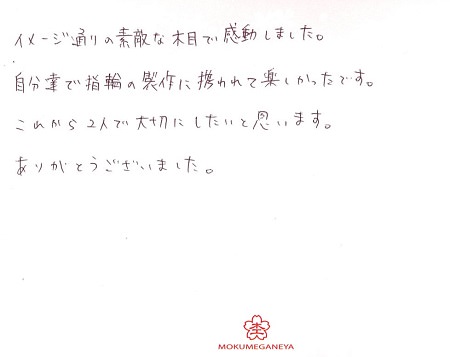 イメージ通りの素敵な木目で感動しました。
自分達で指輪の製作に携われて楽しかったです。
これから2人で大切にしたいと思います。
ありがとうございました。
MOKUMEGANEYA